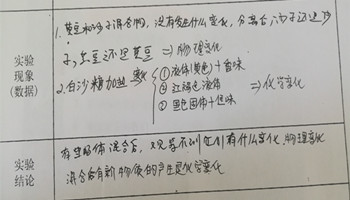 实验
现象
(数据)
1.黄豆和沙子混合物,没有发生什么变化,分离后,沙子还是沙
子,黄豆还是黄豆 ⇒ 物理变化
2.白沙糖加热
① 液体(黄色)+香味
② 红褐色液体
③ 黑色固体+焦味
⇒ 化学变化
实验
结论
有些物体混合后,观察不到它们有什么变化 物理变化
混合后有新物质的产生是化学变化